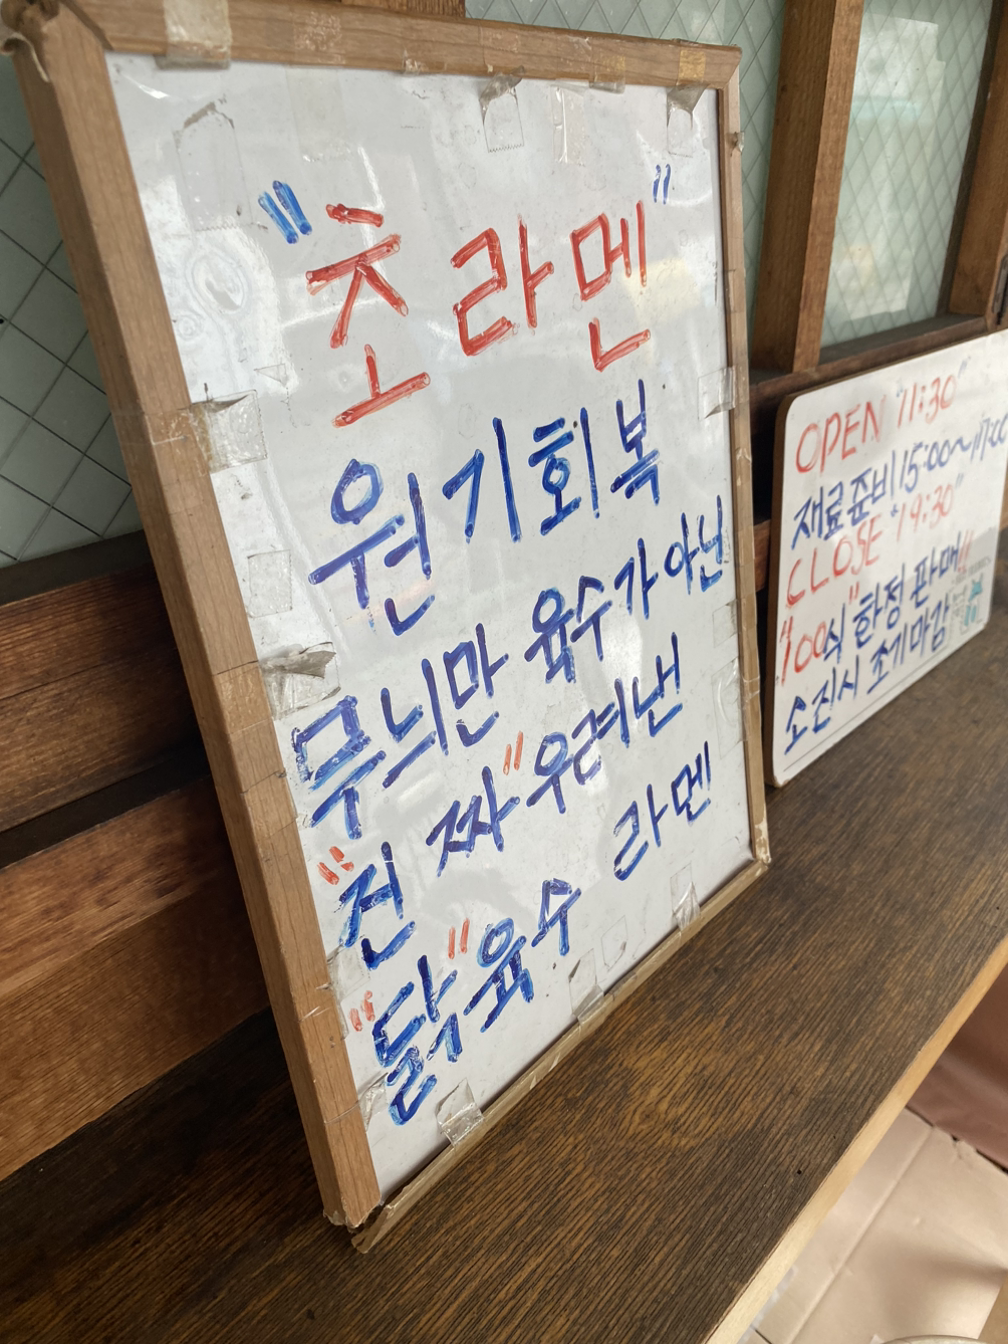 "초라멘"
원기회복
무늬만 육수가 아닌
"진짜" 우려낸
"닭" 육수 라멘
OPEN "11:30"
재료준비 15:00~17:00
CLOSE "19:30"
"100식" 한정 판매"
소진시 조기마감